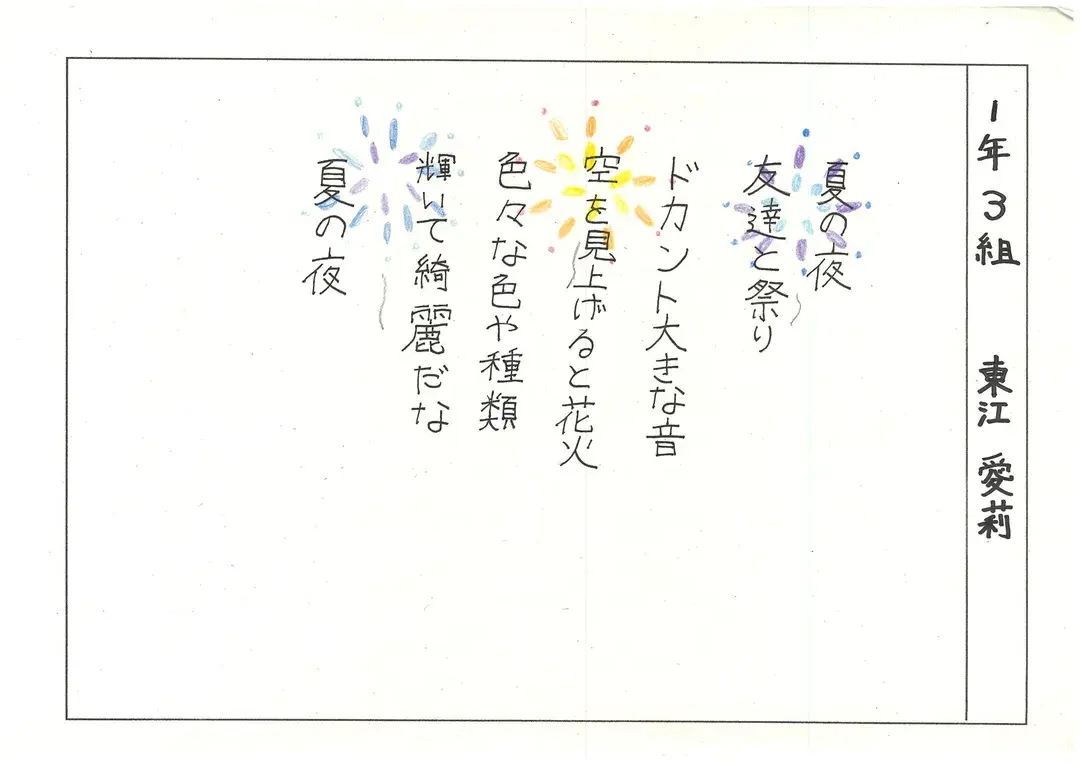 1年3組 東江 愛莉
夏の夜
友達と祭り
ドカント大きな音
空を見上げると花火
色々な色や種類
輝いて綺麗だな
夏の夜